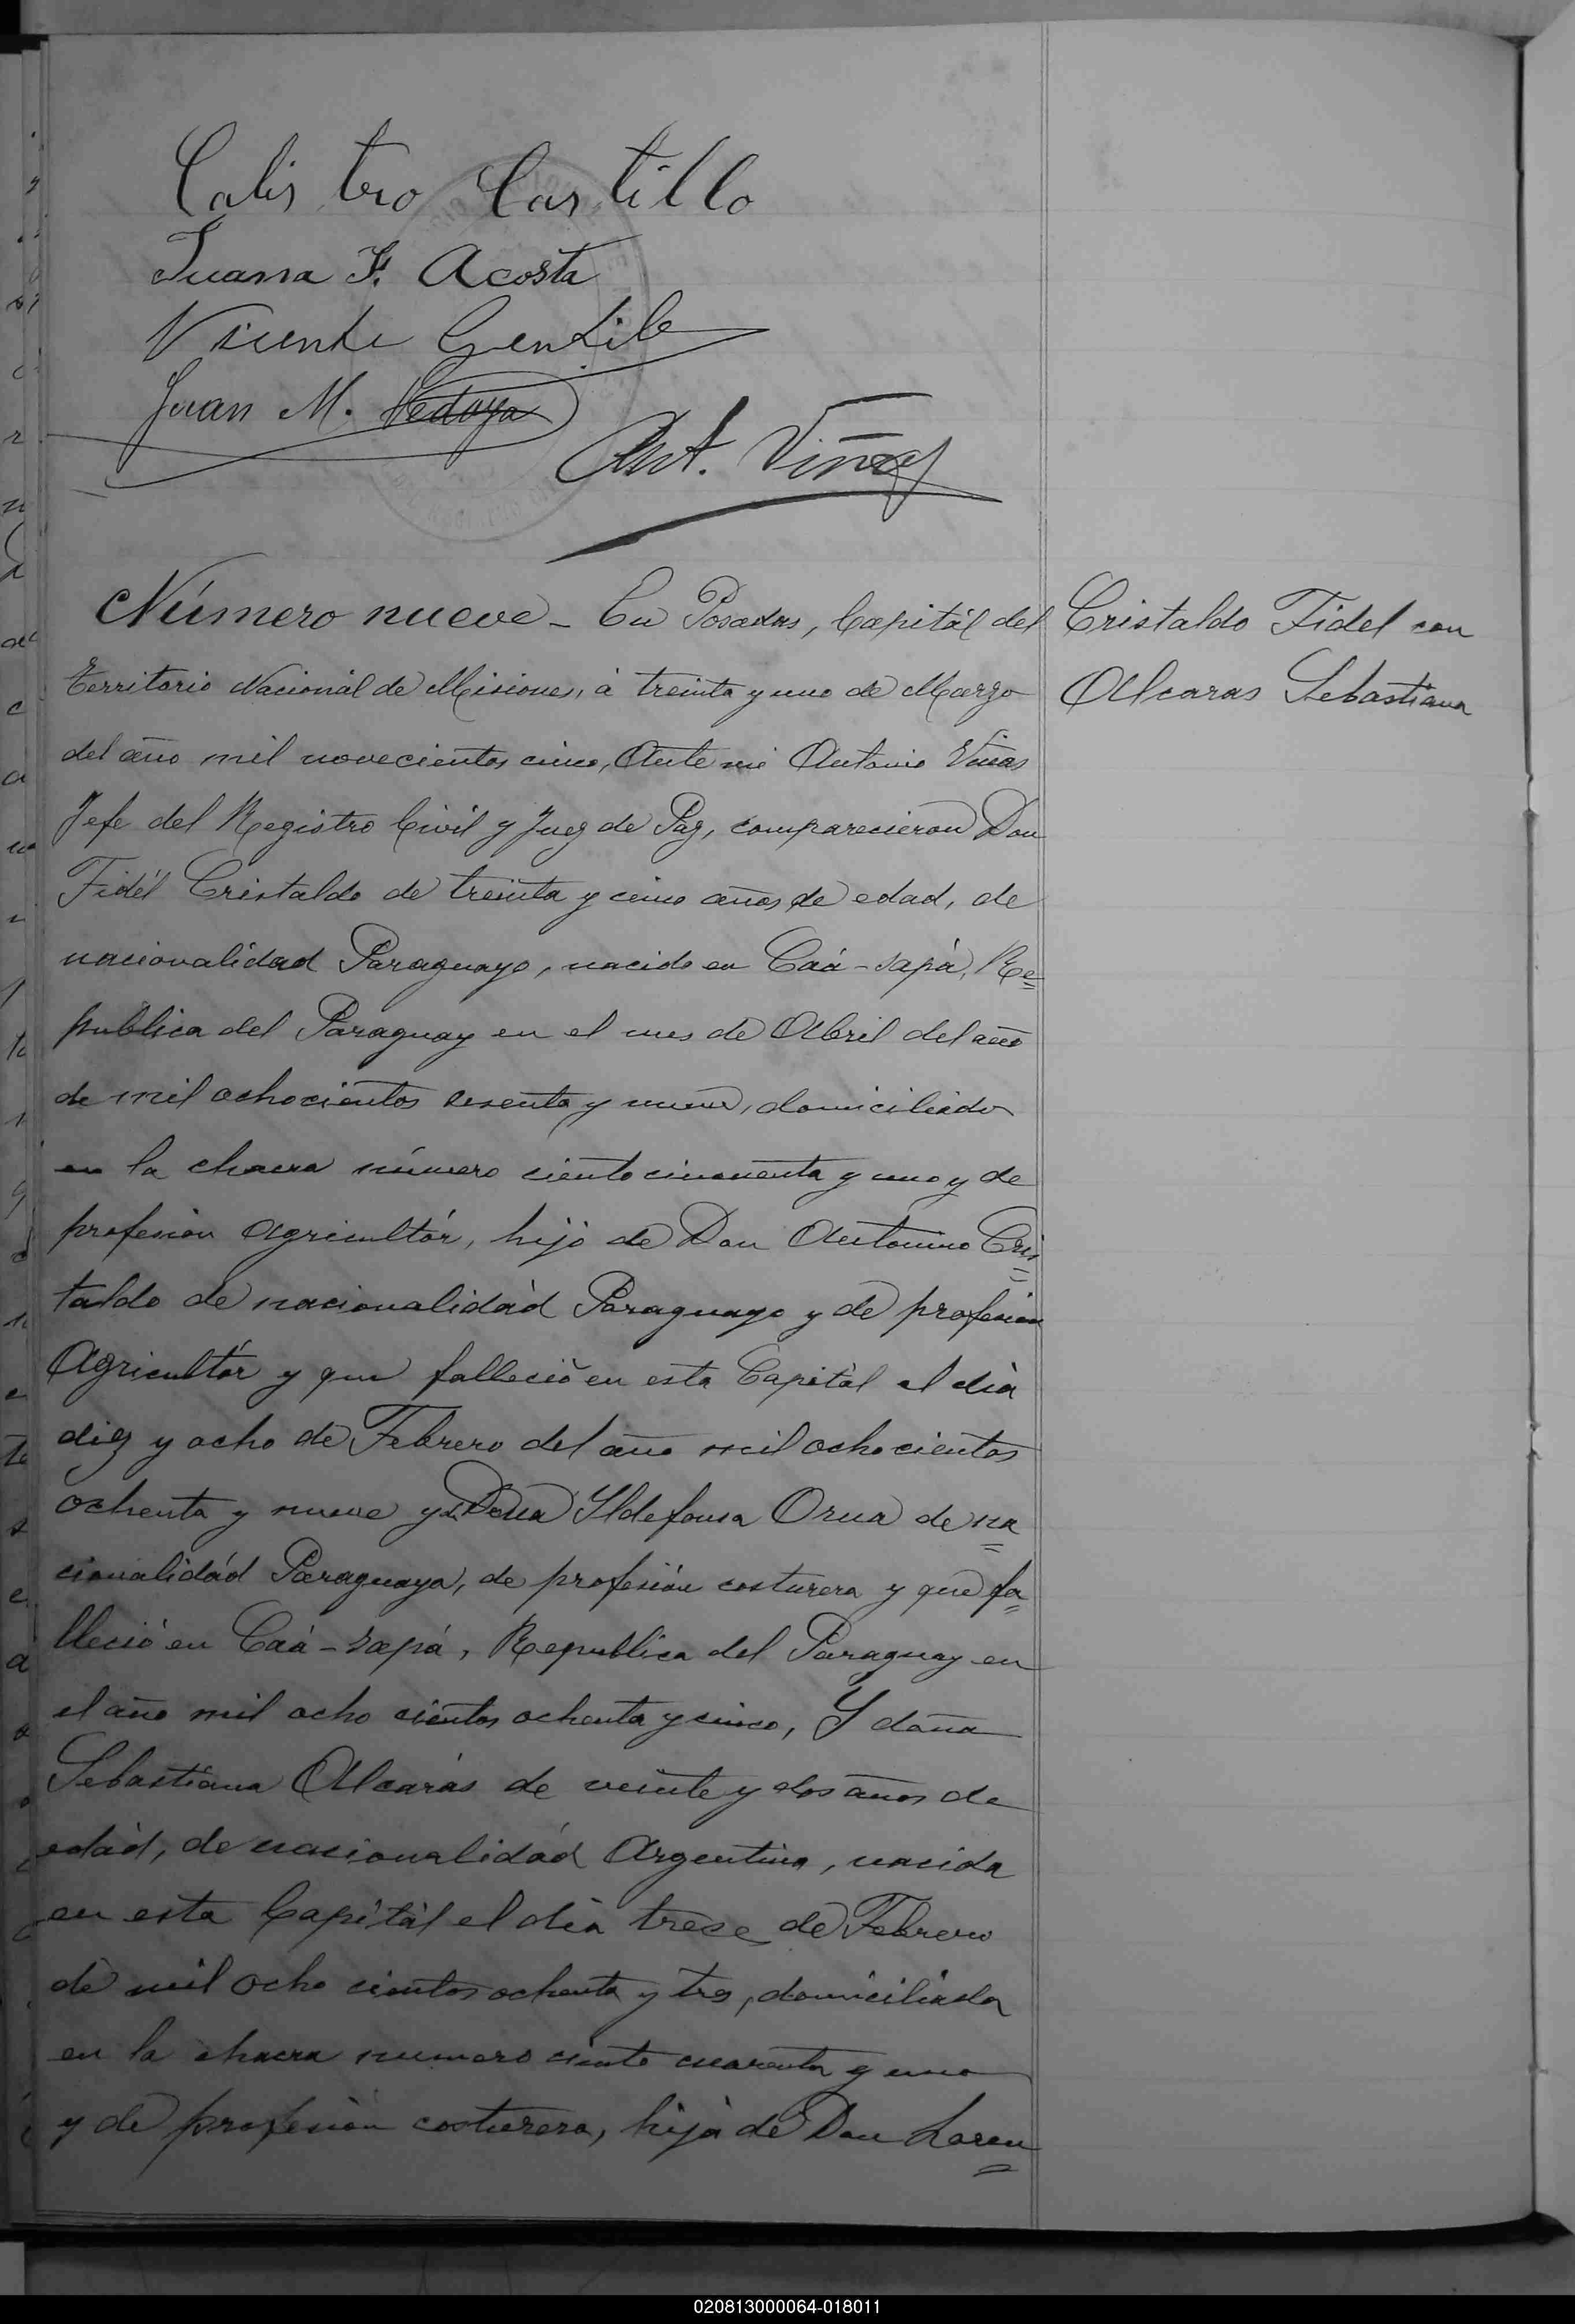 Calis tro Castillo
Juana F. Acosta
Vicente Gentile
Juan M. Bedoya
Ant. Viñas
Número nueve - En Posadas, Capitál del
Cristaldo Fidel con
Territorio Nacionál de Misiones, á treinta y uno de Marzo
Alcaras Sebastiana
del año mil novecientos cinco, Ante mi Antonio Viñas
Jefe del Registro Civil y Juez de Paz, comparecieron Don
Fidél Cristaldo de treinta y cinco años de edad, de
nacionalidad Paraguayo, nacido en Caá-sapá, Re=
publica del Paraguay en el mes de Abril del año
de mil ochocientos sesenta y nueve, domiciliado
en la chacra número ciento cincuenta y uno y de
profesión agricultór, hijo de Don Antonino Cris=
taldo de nacionalidád Paraguayo y de profesion
Agricultór y que falleció en esta Capitál el dia
diez y ocho de Febrero del año mil ochocientos
ochenta y nueve y de Doña Yldefonsa Orua de na=
cionalidád Paraguaya, de profesión costurera y que fa=
lleció en Caá-sapá, Republica del Paraguay en
el año mil ocho cientos ochenta y cinco, Y doña
Sebastiana Alcarás de veinte y dos años de
edád, de nacionalidád Argentina, nacida
en esta Capitál el dia trece de Febrero
de mil ocho cientos ochenta y tres, domiciliada
en la chacra numero ciento cuarenta y uno
y de profesión costurera, hija de Don Loren=
020813000064-018011